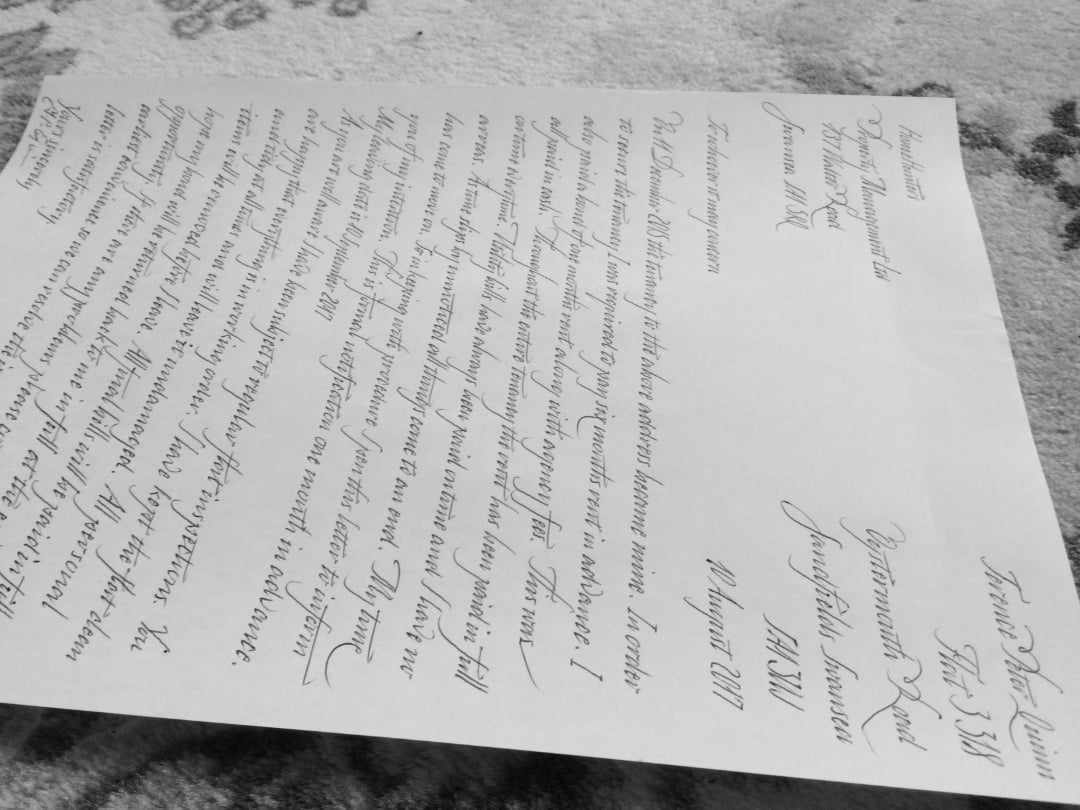 Terence Peter Quinn
Flat 3 318
Oystermouth Road
Sandfields Swansea
SA1 3UJ
10 August 2017
Homehunters
Property Management Ltd
Road
Swansea SA1
To whom it may concern
On 14 December 2013 the tenancy to the above address became mine. In order
to secure the tenancy I was required to pay six months rent in advance. I
also paid a bond of one months rent along with agency fees. This was
all paid in cash. Throughout the entire tenancy the rent has been paid in full
ontime everytime. Utility bills have always been paid ontime and I have no
arrears. As time slips by unnoticed all things come to an end. My time
has come to move on. In keeping with procedure I pen this letter to inform
you of my intention. This is formal notification one month in advance.
My leaving date is 10 September 2017
As you are well aware I have been subject to regular flat inspections. You
are happy that everything is in working order. I have kept the flat clean
and tidy at all times and will leave it undamaged. All personal
items will be removed before I leave. All final bills will be paid in full
I hope my bond will be returned back to me in full at the
opportunity. If there are any problems please
earliest convenience so we can resolve the
letter is satisfactory
Yours Sincerely